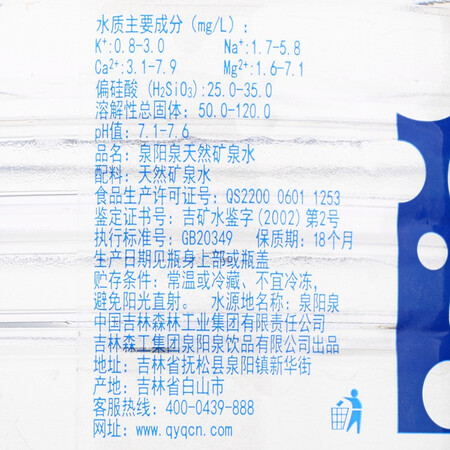 水质主要成分（mg/L）：
K⁺:0.8-3.0 Na⁺:1.7-5.8
Ca²⁺:3.1-7.9 Mg²⁺:1.6-7.1
偏硅酸（H₂SiO₃):25.0-35.0
溶解性总固体：50.0-120.0
pH值：7.1-7.6
品名：泉阳泉天然矿泉水
配料：天然矿泉水
食品生产许可证号：QS2200 0601 1253
鉴定证书号：吉矿水鉴字(2002)第2号
执行标准号：GB20349 保质期：18个月
生产日期见瓶身上部或瓶盖
贮存条件：常温或冷藏、不宜冷冻，
避免阳光直射。 水源地名称：泉阳泉
中国吉林森林工业集团有限责任公司
吉林森工集团泉阳泉饮品有限公司出品
地址：吉林省抚松县泉阳镇新华街
产地：吉林省白山市
客服热线：400-0439-888
网址：www.qyqcn.com